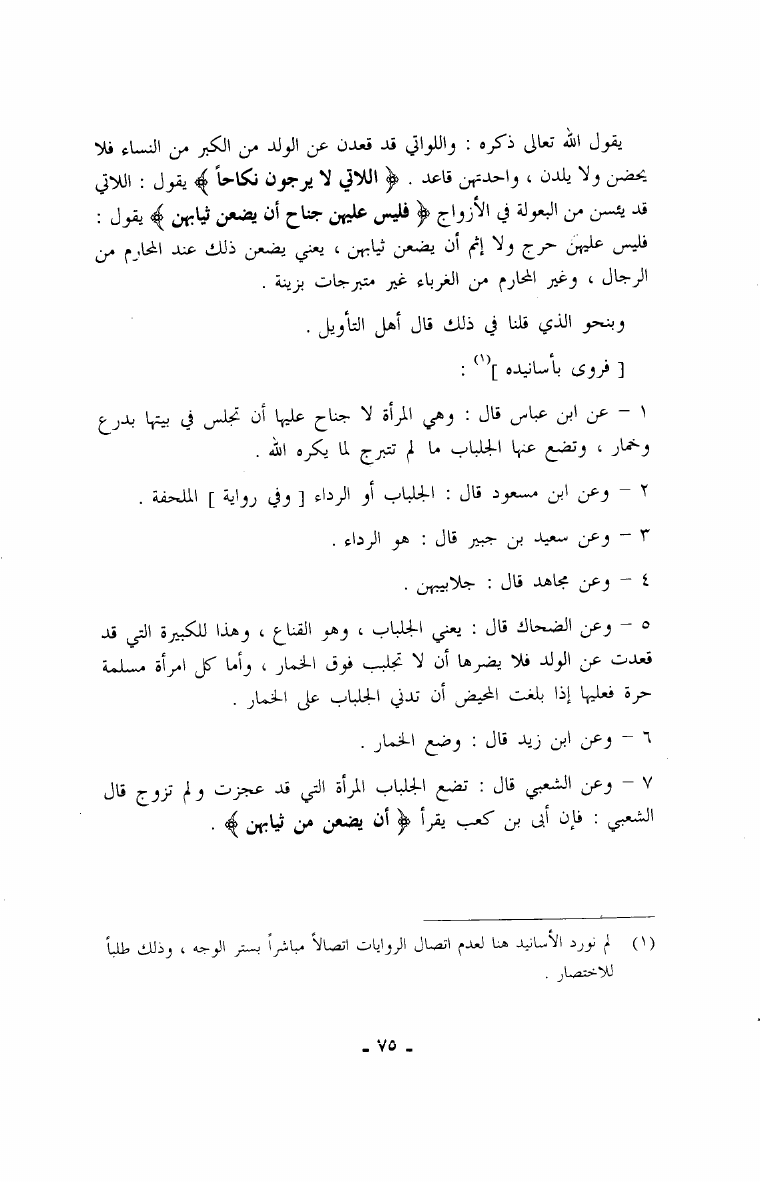 يقول الله تعالى ذكره : واللواتي قد قعدن عن الولد من الكبر من النساء فلا
يحضن ولا يلدن ، واحدتهن قاعد . ﴿ اللاتي لا يرجون نكاحاً ﴾ يقول : اللاتي
قد يئسن من البعولة في الأزواج ﴿ فليس عليهن جناح أن يضعن ثيابهن ﴾ يقول :
فليس عليهنّ حرج ولا إثم أن يضعن ثيابهن ، يعني يضعن ذلك عند المحارم من
الرجال ، وغير المحارم من الغرباء غير متبرجات بزينة .
وبنحو الذي قلنا في ذلك قال أهل التأويل .
[ فروى بأسانيده ](١) :
١ – عن ابن عباس قال : وهي المرأة لا جناح عليها أن تجلس في بيتها بدرع
وخمار ، وتضع عنها الجلباب ما لم تتبرج لما يكره الله .
٢ – وعن ابن مسعود قال : الجلباب أو الرداء [ وفي رواية ] الملحفة .
٣ – وعن سعيد بن جبير قال : هو الرداء .
٤ – وعن مجاهد قال : جلابيبهن .
٥ – وعن الضحاك قال : يعني الجلباب ، وهو القناع ، وهذا للكبيرة التي قد
قعدت عن الولد فلا يضرها أن لا تجلبب فوق الخمار ، وأما كل امرأة مسلمة
حرة فعليها إذا بلغت المحيض أن تدني الجلباب على الخمار .
٦ – وعن ابن زيد قال : وضع الخمار .
٧ – وعن الشعبي قال : تضع الجلباب المرأة التي قد عجزت ولم تزوج قال
الشعبي : فإن أبى بن كعب يقرأ ﴿ أن يضعن من ثيابهن ﴾ .
(١) لم نورد الأسانيد هنا لعدم اتصال الروايات اتصالاً مباشراً بستر الوجه ، وذلك طلباً
للاختصار .
ـ ٧٥ ـ